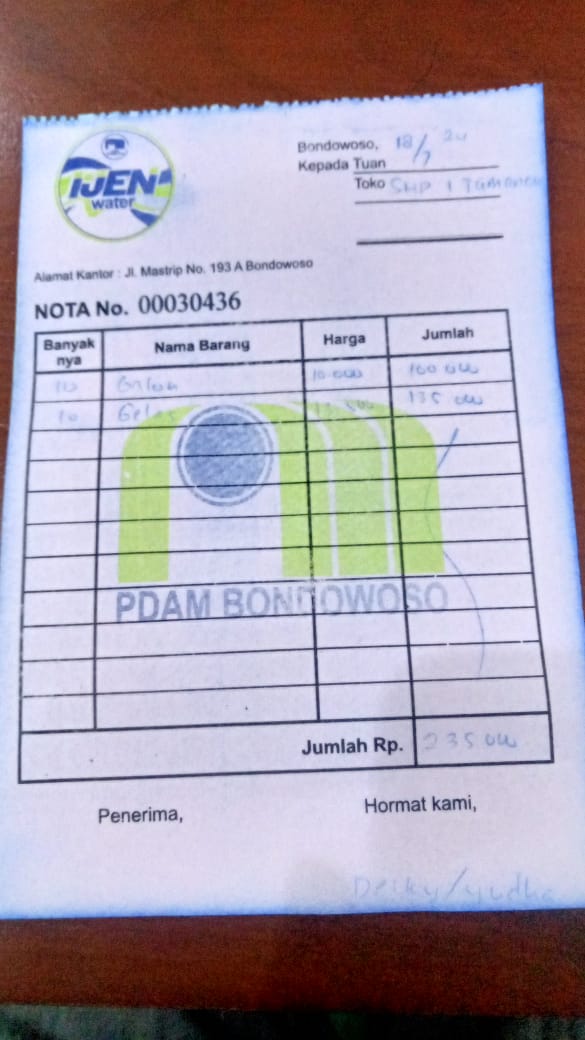 IJEN
water
Bondowoso, 18/7 24
Kepada Tuan
Toko SMP 1 Tamanan
Alamat Kantor : Jl. Mastrip No. 193 A Bondowoso
NOTA No. 00030436
Banyak nya Nama Barang Harga Jumlah
10 Galon 10.000 100 000
10 Gelas 13.500 135 000
PDAM BONDOWOSO
Jumlah Rp. 235 000
Penerima, Hormat kami,
/yudha